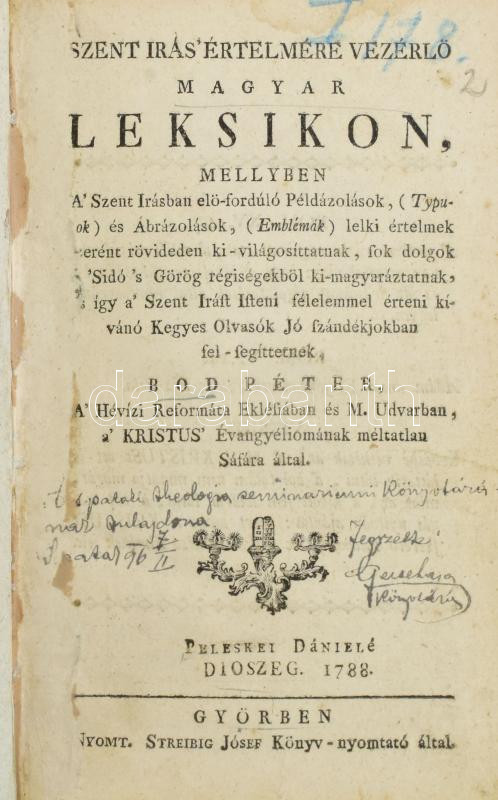 I 178.
2
SZENT IRÁS' ÉRTELMÉRE VEZÉRLŐ
MAGYAR
LEKSIKON,
MELLYBEN
A' Szent Irásban elö-fordúló Példázolások, (Typu-
ok) és Ábrázolások, (Emblémák) lelki értelmek
erént rövideden ki-világosíttatnak, sok dolgok
'Sidó 's Görög régiségekböl ki-magyaráztatnak,
's így a' Szent Irást Isteni félelemmel érteni kí-
vánó Kegyes Olvasók Jó szándékjokban
fel-segíttetnek,
BOD PÉTER,
A' Hévízi Reformáta Eklésiában és M. Udvarban,
a' KRISTUS' Evangyéliomának méltatlan
Sáfára által.
A s pataki theologia seminariumi Könyvtárá-
nak tulajdona
S patak 96 7/II
Jegyzette:
Könyvtárn
PELESKEI DÁNIELÉ
DIOSZEG. 1788.
GYÖRBEN
NYOMT. STREIBIG JÓSEF Könyv-nyomtató által.
darabanth